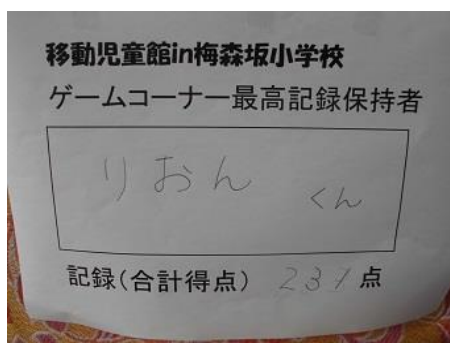 移動児童館in梅森坂小学校
ゲームコーナー最高記録保持者
りおん くん
記録(合計得点) 231点